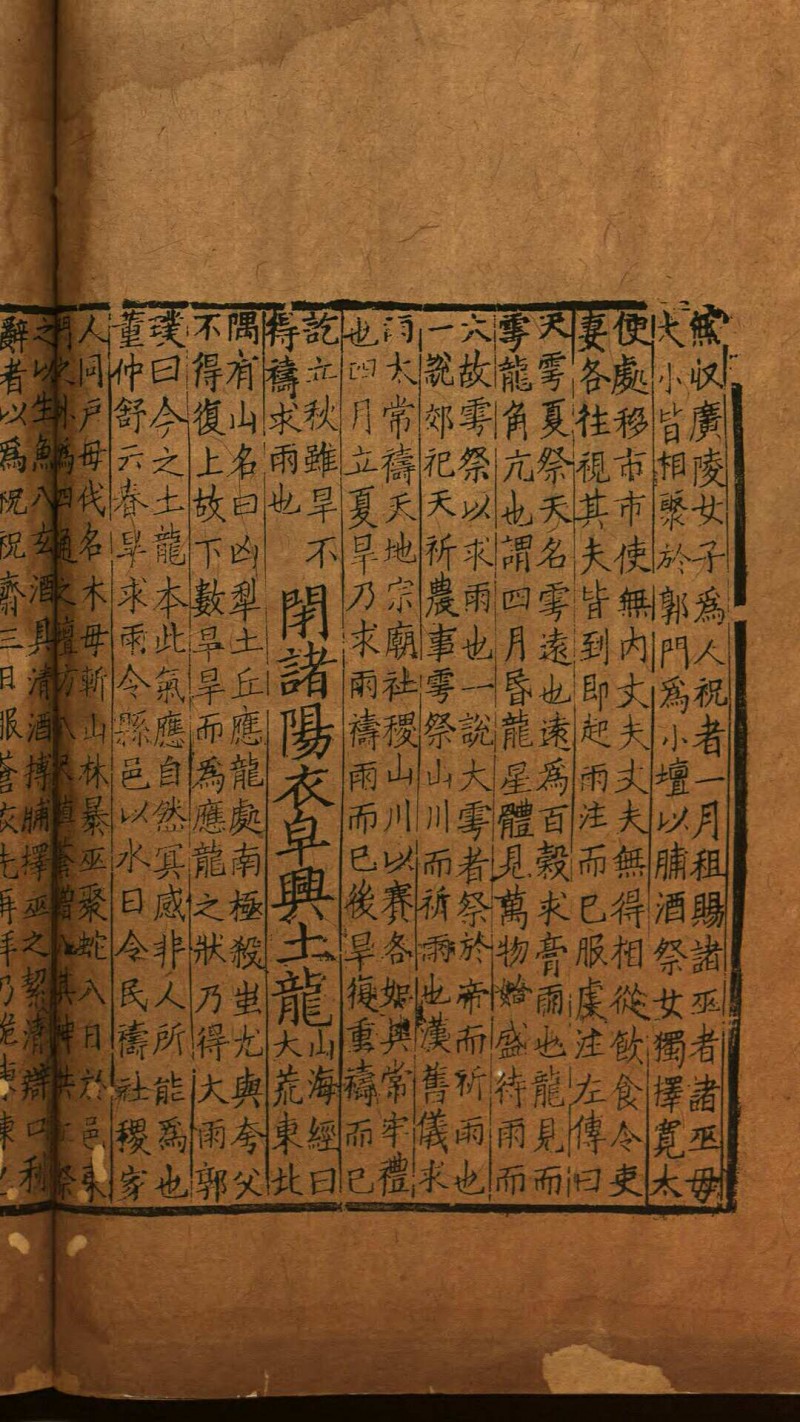 無收廣陵女子爲人祝者一月租賜諸巫者諸巫毋
大小皆相聚於郭門爲小壇以脯酒祭女獨擇寬太
使處移市市使無内丈夫丈夫無得相從飲食令吏
妻各往視其夫皆到即起雨注而已服虔注左傳曰
天雩夏祭天名雩遠也遠爲百穀求膏雨也龍見而
雩龍角亢也謂四月昏龍星體見萬物始盛待雨而
大故雩祭以求雨也一說大雩者祭於帝而祈雨也
一說郊祀天祈農事雩祭山川而祈雨也漢舊儀求
雨太常禱天地宗廟社稷山川以賽各如其常牢禮
也四月立夏旱乃求雨禱雨而已後旱復重禱而已
訖立秋雖旱不
得禱求雨也
閉諸陽衣皁興土龍
山海經曰
大荒東北
隅有山名曰凶犁土丘應龍處南極殺蚩尤與夸父
不得復上故下數旱旱而爲應龍之狀乃得大雨郭
璞曰今之土龍本此氣應自然冥感非人所能爲也
董仲舒云春旱求雨令縣邑以水日令民禱社稷家
人祠戶毋伐名木毋斬山林暴巫聚蛇八日於邑東
門之外爲四通之壇方八尺植蒼繒八其神共工祭
之以生魚八玄酒具清酒搏脯擇巫之絜清辯口利
辭者以爲祝祝齋三日服蒼衣先再拜乃跪陳陳